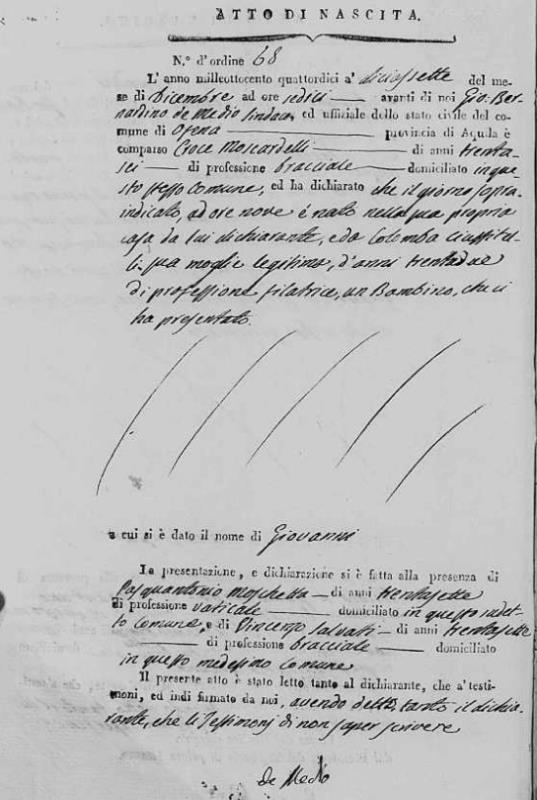 ATTO DI NASCITA.
N.° d'ordine 68
L'anno milleottocento quattordici a' diciassette del me-
se di Dicembre ad ore sedici avanti di noi Gio: Ber-
nardino de Medio Sindaco, ed uffiziale dello stato civile del co-
mune di Ofena provincia di Aquila è
comparso Croce Moscardelli di anni trenta-
sei di professione bracciale domiciliato in que-
sto stesso comune, ed ha dichiarato che il giorno sopra-
indicato, ad ore nove è nato nella sua propria
casa da lui dichiarante, e da Colomba
sua moglie legitima, d'anni trentadue
di professione filatrice, un Bambino, che ci
ha presentato.
a cui si è dato il nome di Giovanni
La presentazione, e dichiarazione si è fatta alla presenza di
Pasquantonio Moschetta di anni trentasette
di professione vaticale domiciliato in questo sudet-
to Comune, e di Vincenzo Salvati di anni trentasette
di professione bracciale domiciliato
in questo medesimo Comune
Il presente atto è stato letto tanto al dichiarante, che a' testi-
moni, ed indi firmato da noi, avendo detto tanto il dichia-
rante, che li Testimonj di non saper scrivere
de Medio